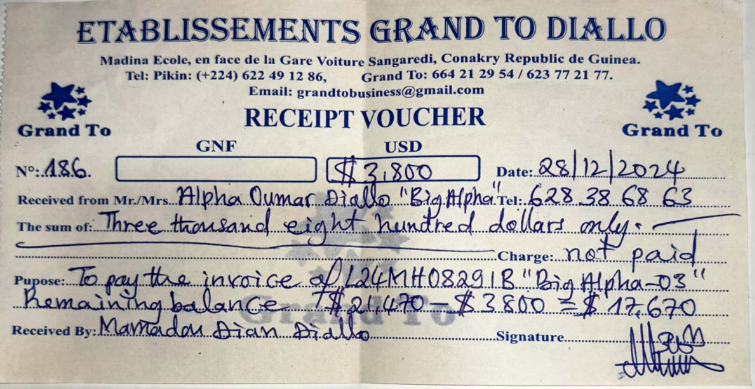 ETABLISSEMENTS GRAND TO DIALLO
Madina Ecole, en face de la Gare Voiture Sangaredi, Conakry Republic de Guinea.
Tel: Pikin: (+224) 622 49 12 86, Grand To: 664 21 29 54 / 623 77 21 77.
Email: grandtobusiness@gmail.com
Grand To
RECEIPT VOUCHER
Grand To
GNF USD
Nº: 186. $ 3,800 Date: 28/12/2024
Received from Mr./Mrs. Alpha Oumar Diallo "Big Alpha" Tel: 628 38 68 63
The sum of: Three thousand eight hundred dollars only.
Charge: not paid
Pupose: To pay the invoice of L24MH08291B "Big Alpha-03"
Remaining balance $ 21,470 - $ 3800 = $ 17,670
Grand To
Received By: Mamadou Dian Diallo Signature